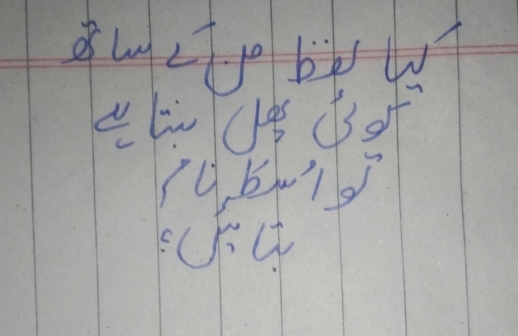 کیا لفظ من کے ساتھ
کوئی پھل بنتا ہے
تو اسکا نام
بتائیں؟